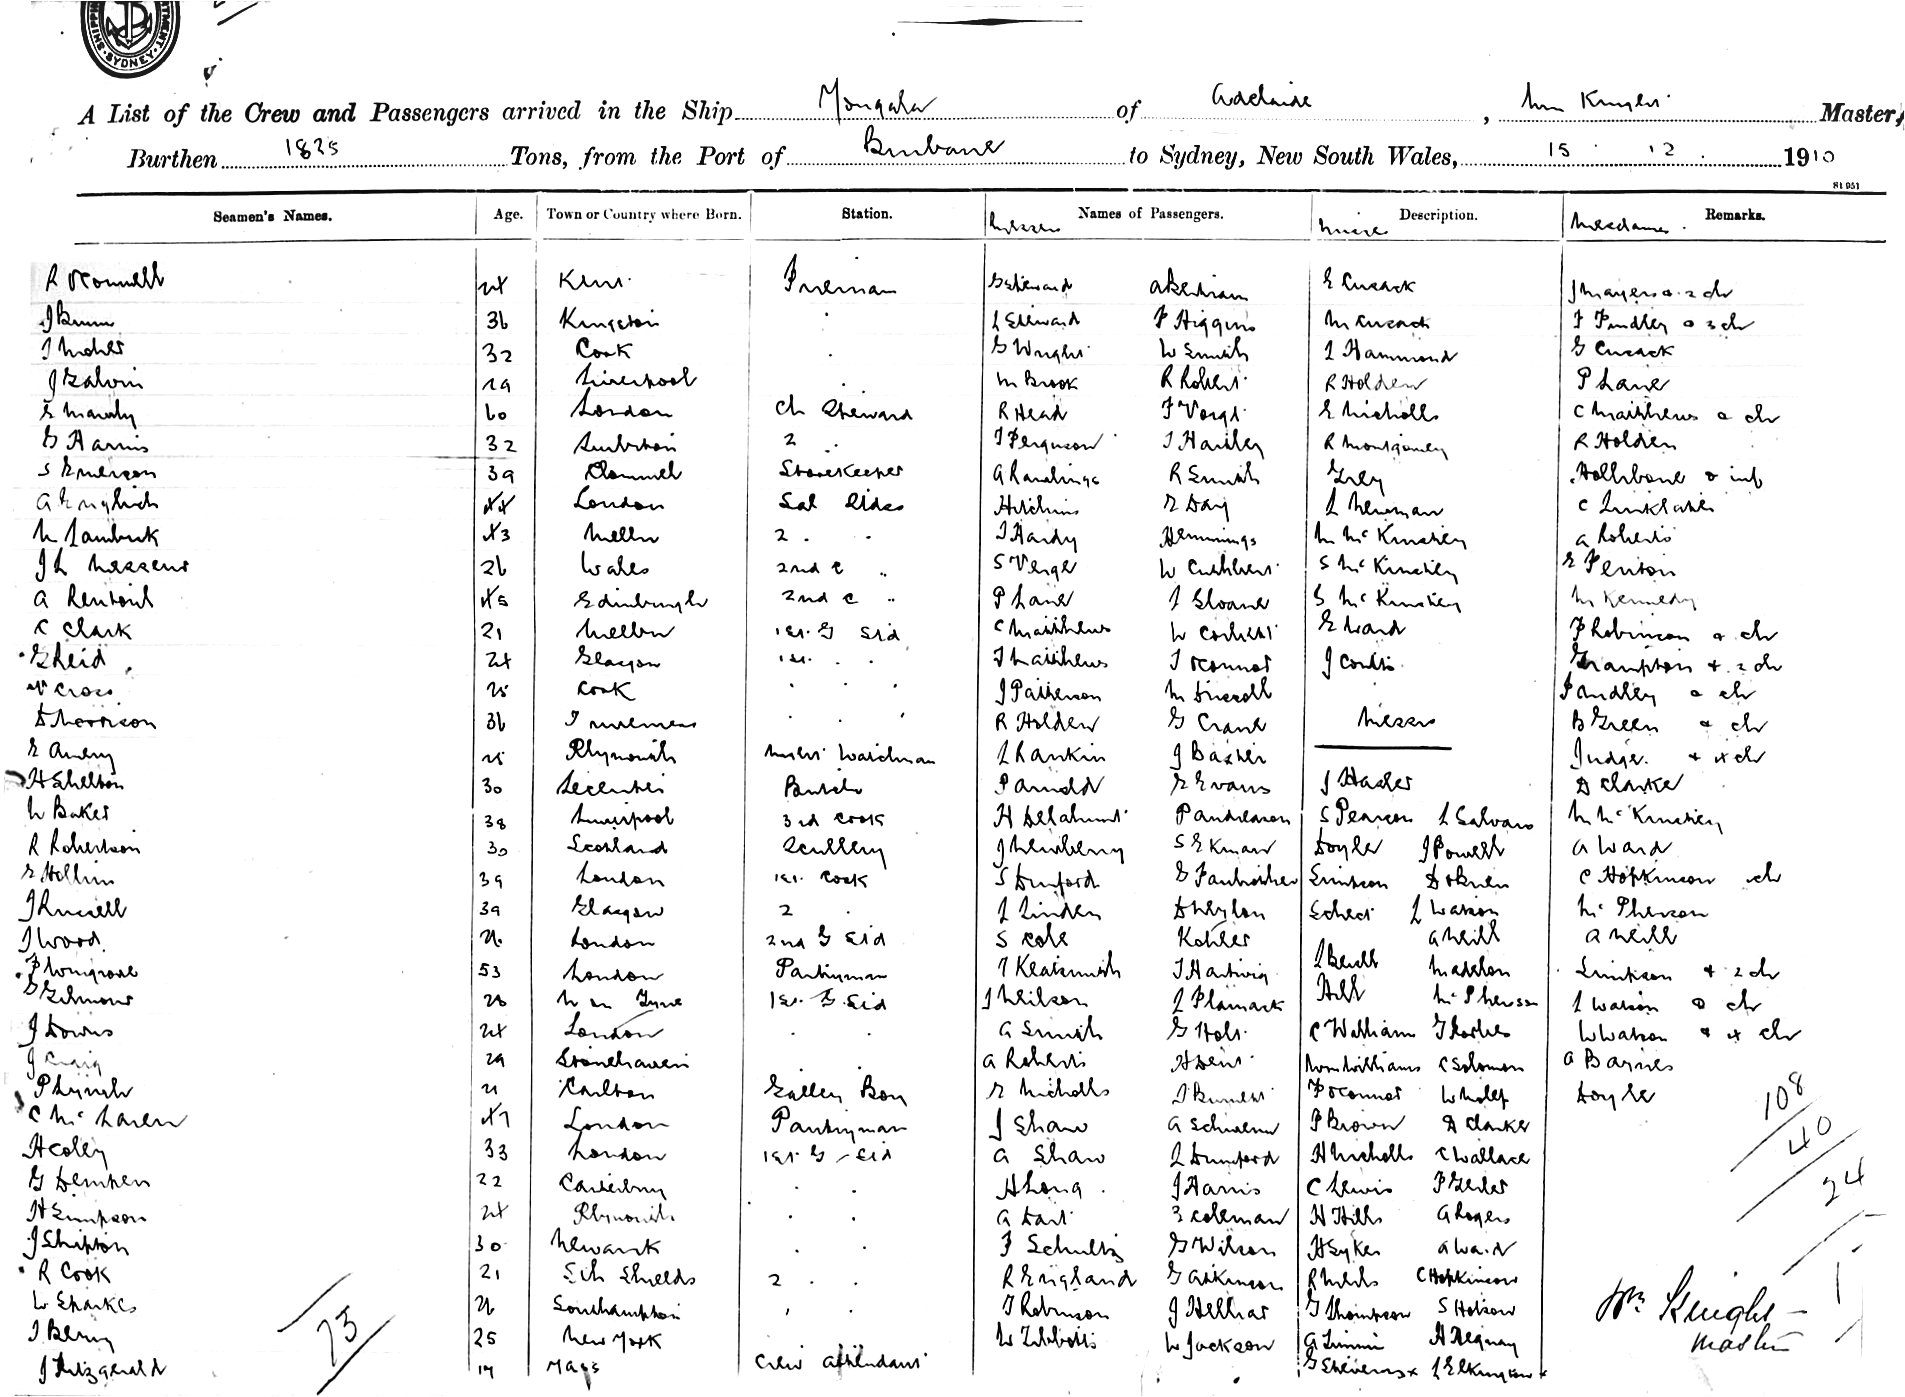 SYDNEY
A List of the Crew and Passengers arrived in the Ship Mongala of Adelaide, Wm Knight Master,
Burthen 1825 Tons, from the Port of Brisbane to Sydney, New South Wales, 15 12 1910
81 951
Seamen's Names. Age. Town or Country where Born. Station. Names of Passengers. Description. Remarks.
Messrs Misses Mesdames
R O'Connell 24 Kent Fireman G Steward E Cusack J Mayers & 2 ch
J Brown 36 Kingston L Steward F Higgins M Cusack F Findley & 3 ch
32 Cook G Wright W Smith L Hammond G Cusack
J Galvin 29 Liverpool M Brook R Robert R Holden P Lane
60 London Ch Steward R Head F Voigt E Nicholls C Matthews & ch
G Harris 32 Surbiton 2 T Ferguson T Hartley R Montgomery R Holden
S Emerson 39 Clonmel Storekeeper A Rawlings R Smith Grey Hollibone & inf
A English 44 London Sal Stdss Hitchins E Day L Newman C Linklater
43 Melbn 2 T Hardy Hemmings M McKinstrey A Roberts
26 Wales 2nd C S Verge W Cuthbert S McKinstrey E Penton
A 45 Edinburgh 2nd C P Lane L Sloane S McKinstrey M Kennedy
C Clark 21 Melbn 1st G Std C Matthews W Corbett E Ward F Robinson & ch
G Reid 24 Glasgow 1st T Matthews T O'Connor J Coutts Grampton & 2 ch
Cross Cook J Patterson M Driscoll Findley & ch
D Morrison 36 Inverness R Holden G Crane Messrs B Green & ch
E Avery Plymouth Night Watchman L Rankin J Baxter Judge & 4 ch
H Shelton 30 Leicester Butch P Arnold E Evans J Hasler D Clarke
W Baker 38 Liverpool 3rd Cook H Delahunt P Andreason S Pearson L Salvaro M McKinstrey
R Robertson 30 Scotland Scullery J Newberry S Ekman Doyle J Powell A Ward
E Hollins 39 London 1st Cook S Dunford Simpson D O'Brien C Hopkinson ch
J Russell 39 Glasgow 2 L Linden Scheet L Watson McPherson
J Wood 26 London 2nd G Std S Cole Kohler A Neill A Neill
F Wingrove 53 London Pantryman T Keatsmith T Hartwig Madelon Simpson & 2 ch
G Gilmour 26 N on Tyne 1st G Std J Neilson Hill McPherson L Watson & ch
J Downs 24 London A Smith G Holt C William G Forbes W Watson & 4 ch
J Craig 29 Stonehaven A Roberts H Dent Wm Williams C Solomon A Barnes
P Lynch 21 Carlton Galley Boy E Nicholls J Burnett P O'Connor W Doyle
C McLaren 47 London Pantryman J Shaw P Brown D Clarke
H Coley 33 London 1st G Std A Shaw L Dunford H Nicholls C Wallace
G Dempsen 22 Canterbury H Long J Harris C Lewis
H Simpson 24 Plymouth A Dart Coleman H Hills A Rogers
J Shipton 30 Newark F Schultz G Wilson H Sykes A Ward
R Cook 21 Sth Shields 2 R England G Atkinson C Hopkinson
W Sparkes 26 Southampton T Robinson J Hellier G Thompson S Hobson
J Berry 25 New York W Tibbotts W Jackson
J Fitzgerald 17 Crew Attendant G Stevens x L Elkington x
73
108
40
24
1
Wm Knight
Master